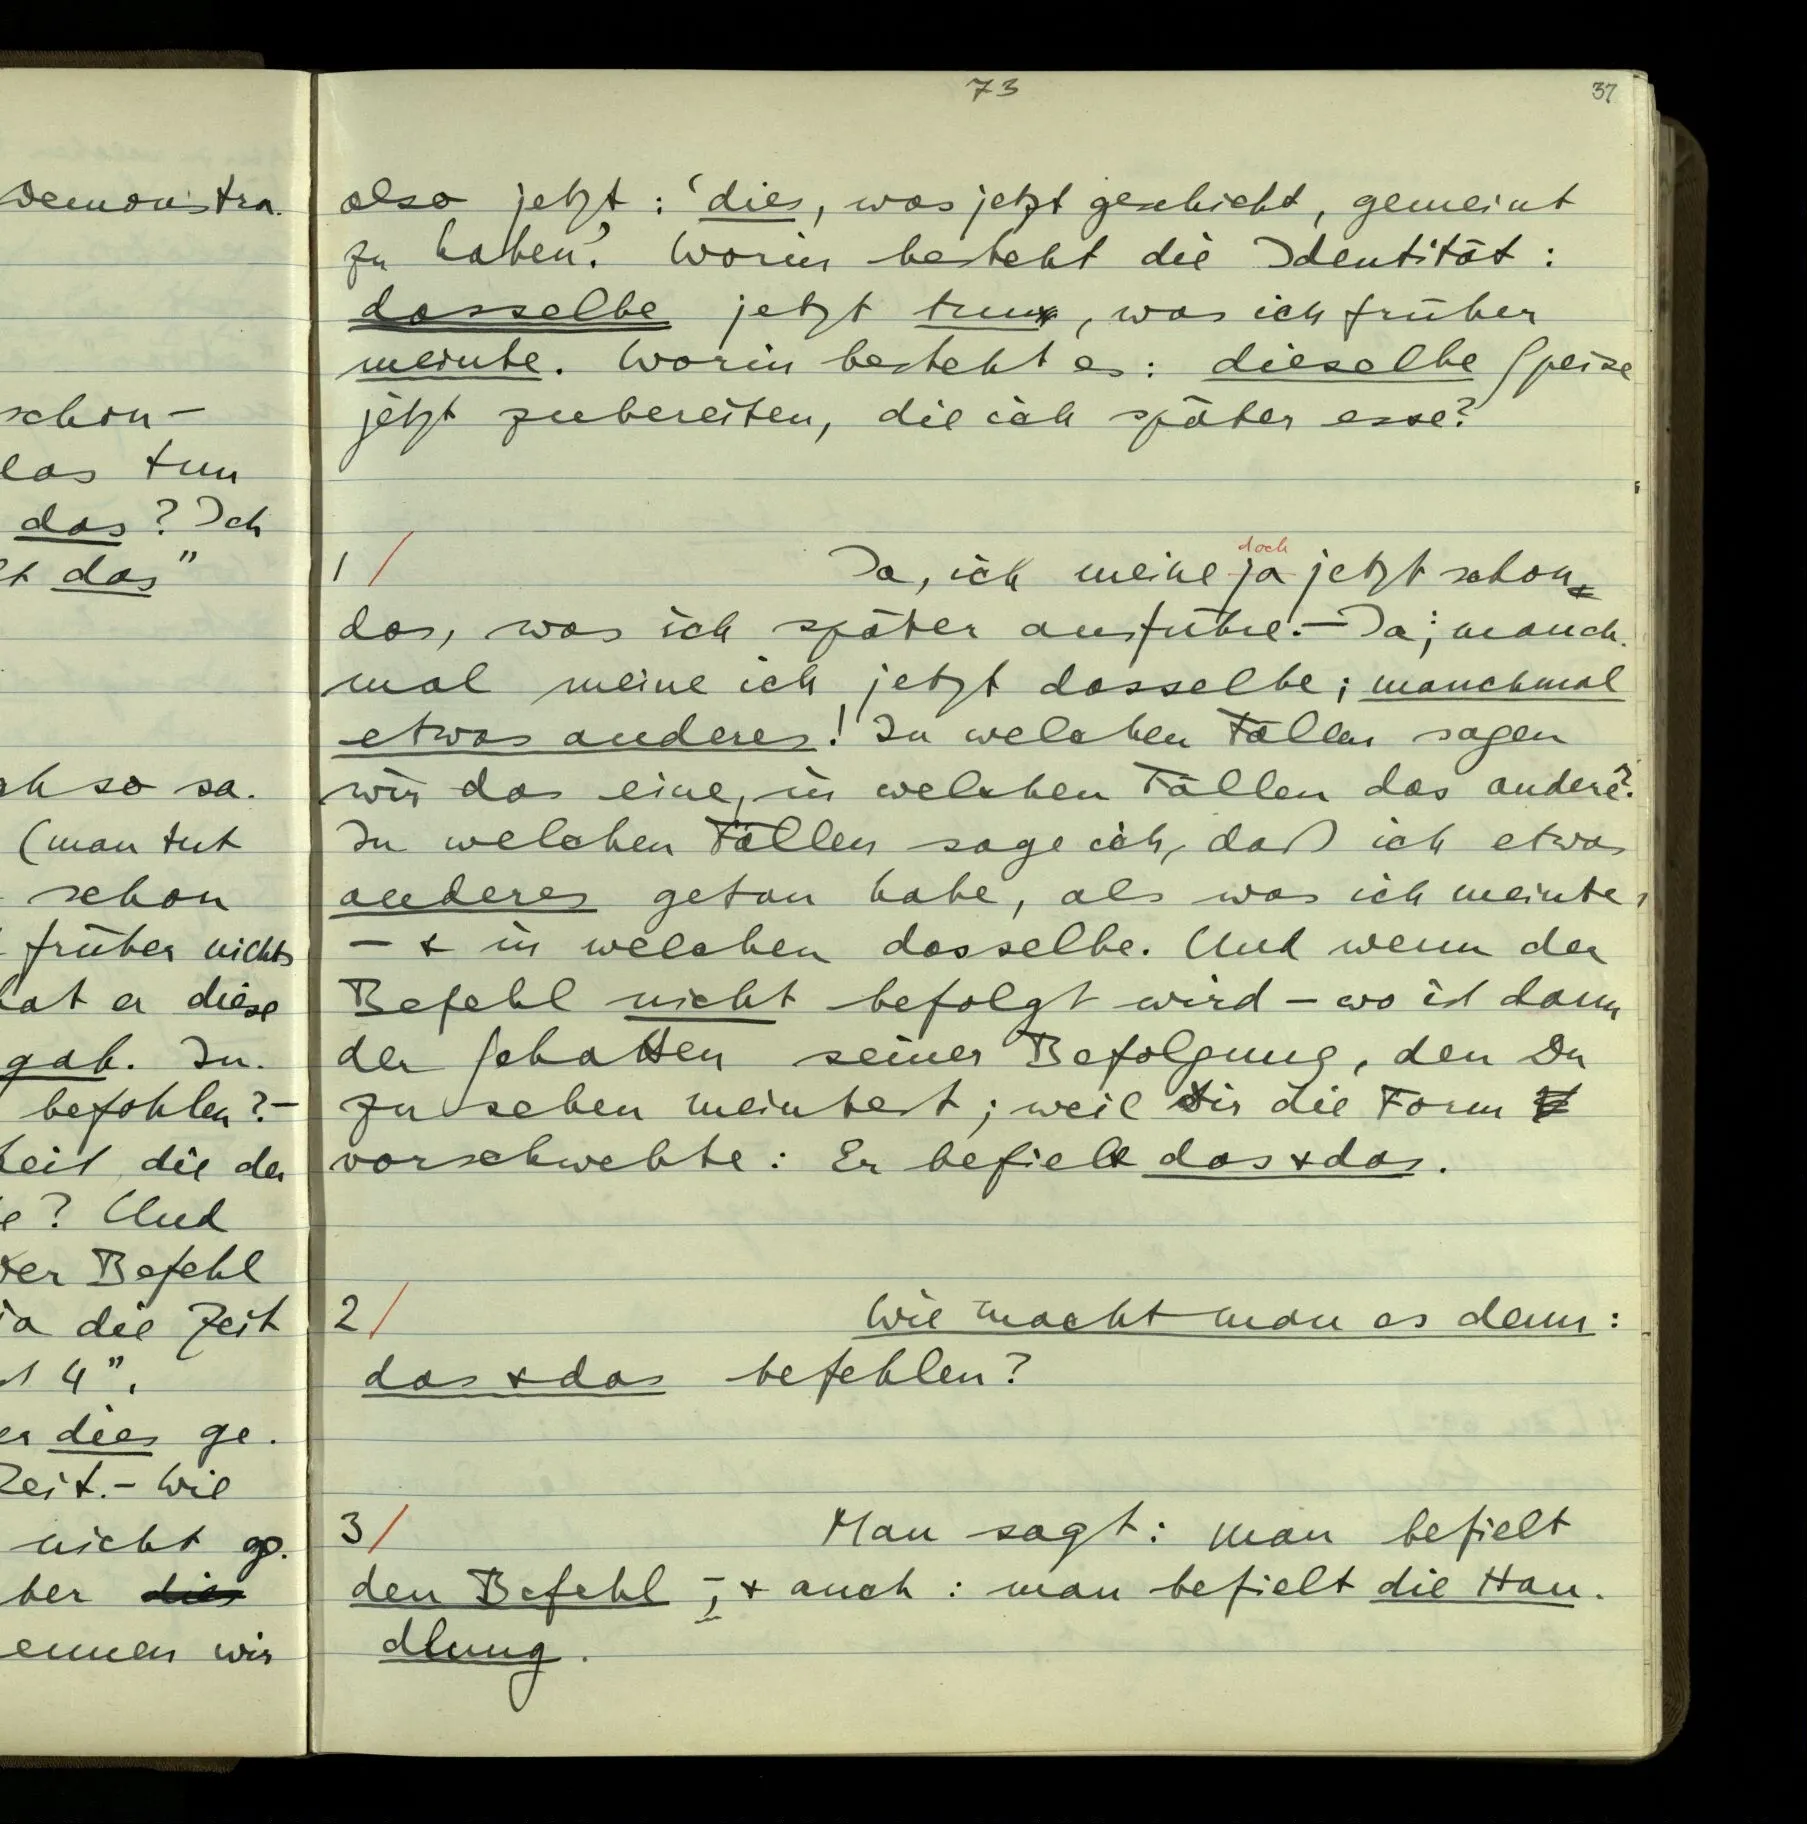 Demonstra.
schon –
das tun
das? Ich
das"
so sa.
(man tut
schon
früher nichts
hat er diese
gab. In.
befohlen? –
die der
? Und
der Befehl
ja die Zeit
4".
dies ge.
Zeit. – Wie
nicht ge.
ber dies
ennen wir
73
37
also jetzt: 'dies, was jetzt geschieht, gemeint
zu haben'? Worin besteht die Identität:
dasselbe jetzt tun, was ich früher
meinte. Worin besteht es: dieselbe Speise
jetzt zubereiten, die ich später esse?
1/ Ja, ich meine ja doch jetzt schon
das, was ich später ausführe. – Ja; manch.
mal meine ich jetzt dasselbe; manchmal
etwas anderes! In welchen Fällen sagen
wir das eine, in welchen Fällen das andere?
In welchen Fällen sage ich, daß ich etwas
anderes getan habe, als was ich meinte,
– & in welchen dasselbe. Und wenn der
Befehl nicht befolgt wird – wo ist dann
der Schatten seiner Befolgung, den Du
zu sehen meintest; weil Dir die Form
vorschwebte: Er befielt das & das.
2/ Wie macht man es denn:
das & das befehlen?
3/ Man sagt: man befielt
den Befehl –, & auch: man befielt die Han.
dlung.